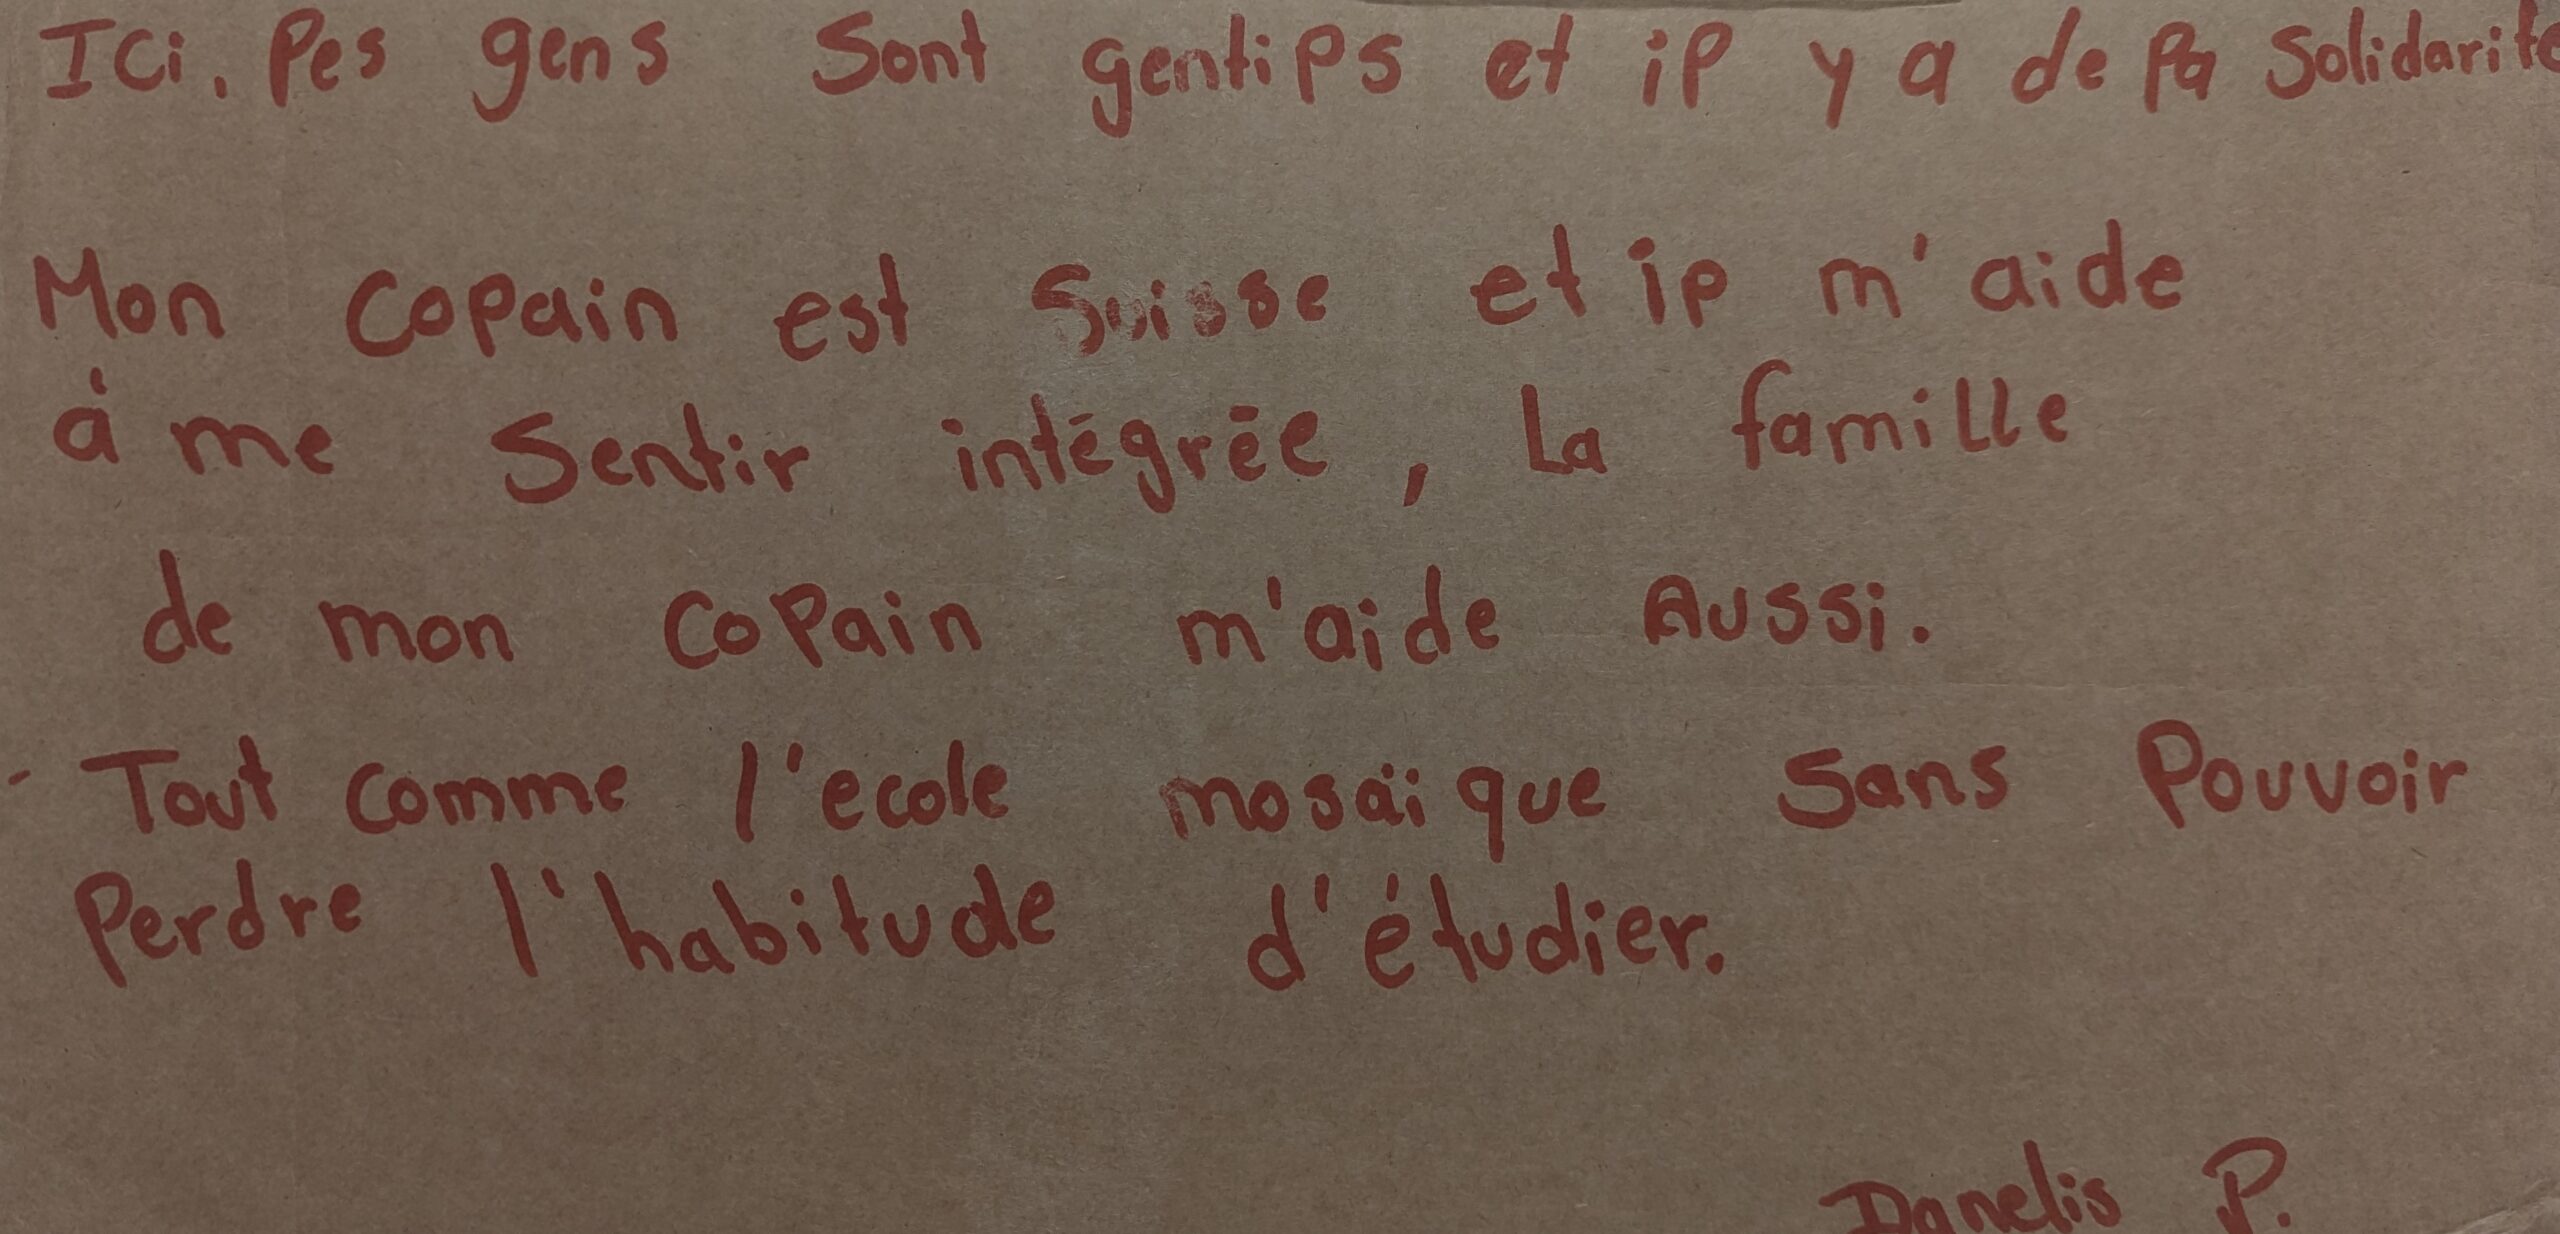 Ici, les gens sont gentils et il y a de la solidarité
Mon copain est Suisse et il m'aide
à me sentir intégrée, La famille
de mon copain m'aide Aussi.
- Tout comme l'ecole mosaïque sans pouvoir
perdre l'habitude d'étudier.
Danelis P.